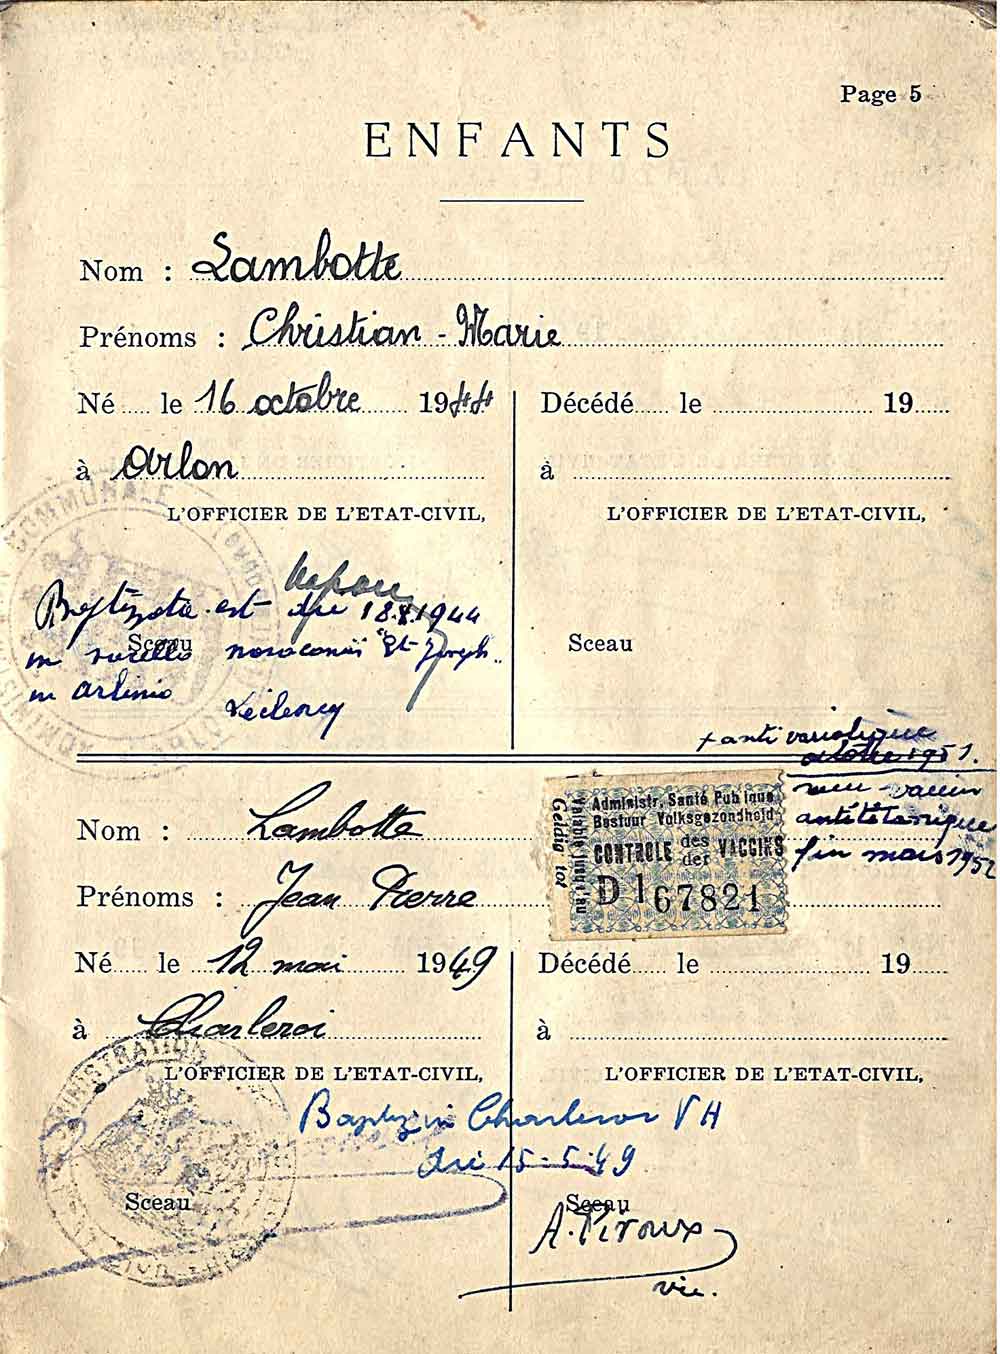 Page 5
ENFANTS
Nom : Lambotte
Prénoms : Christian-Marie
Né le 16 octobre 1944
Décédé le 19
à Arlon
à
L'OFFICIER DE L'ETAT-CIVIL,
L'OFFICIER DE L'ETAT-CIVIL,
COMMUNALE
est die 18.X.1944
Sceau
Sceau
"St Joseph"
in
+ antivariolique
octobre 1951.
vaccin
antitétanique
fin mars 1952
Administr. Santé Publique
Bestuur Volksgezondheid
Valable jusqu'au
Geldig tot
CONTROLE des der VACCINS
D1 67821
Nom : Lambotte
Prénoms : Jean Pierre
Né le 12 mai 1949
Décédé le 19
à Charleroi
à
ADMINISTRATION
L'OFFICIER DE L'ETAT-CIVIL,
L'OFFICIER DE L'ETAT-CIVIL,
in Charleroi VH
die 15-5-49
Sceau
Sceau
A. Piroux
vic.